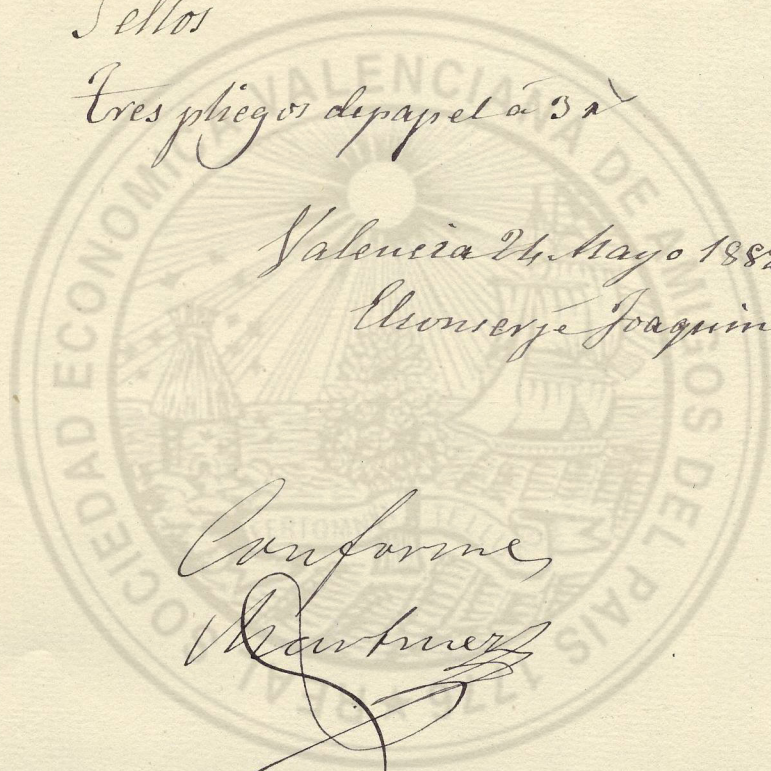 Sellos
tres pliegos de papel á 3 r
Valencia 24 Mayo 188
El conserje Joaquin
Conforme
Martinez
REAL SOCIEDAD ECONOMICA VALENCIANA DE AMIGOS DEL PAIS 1776